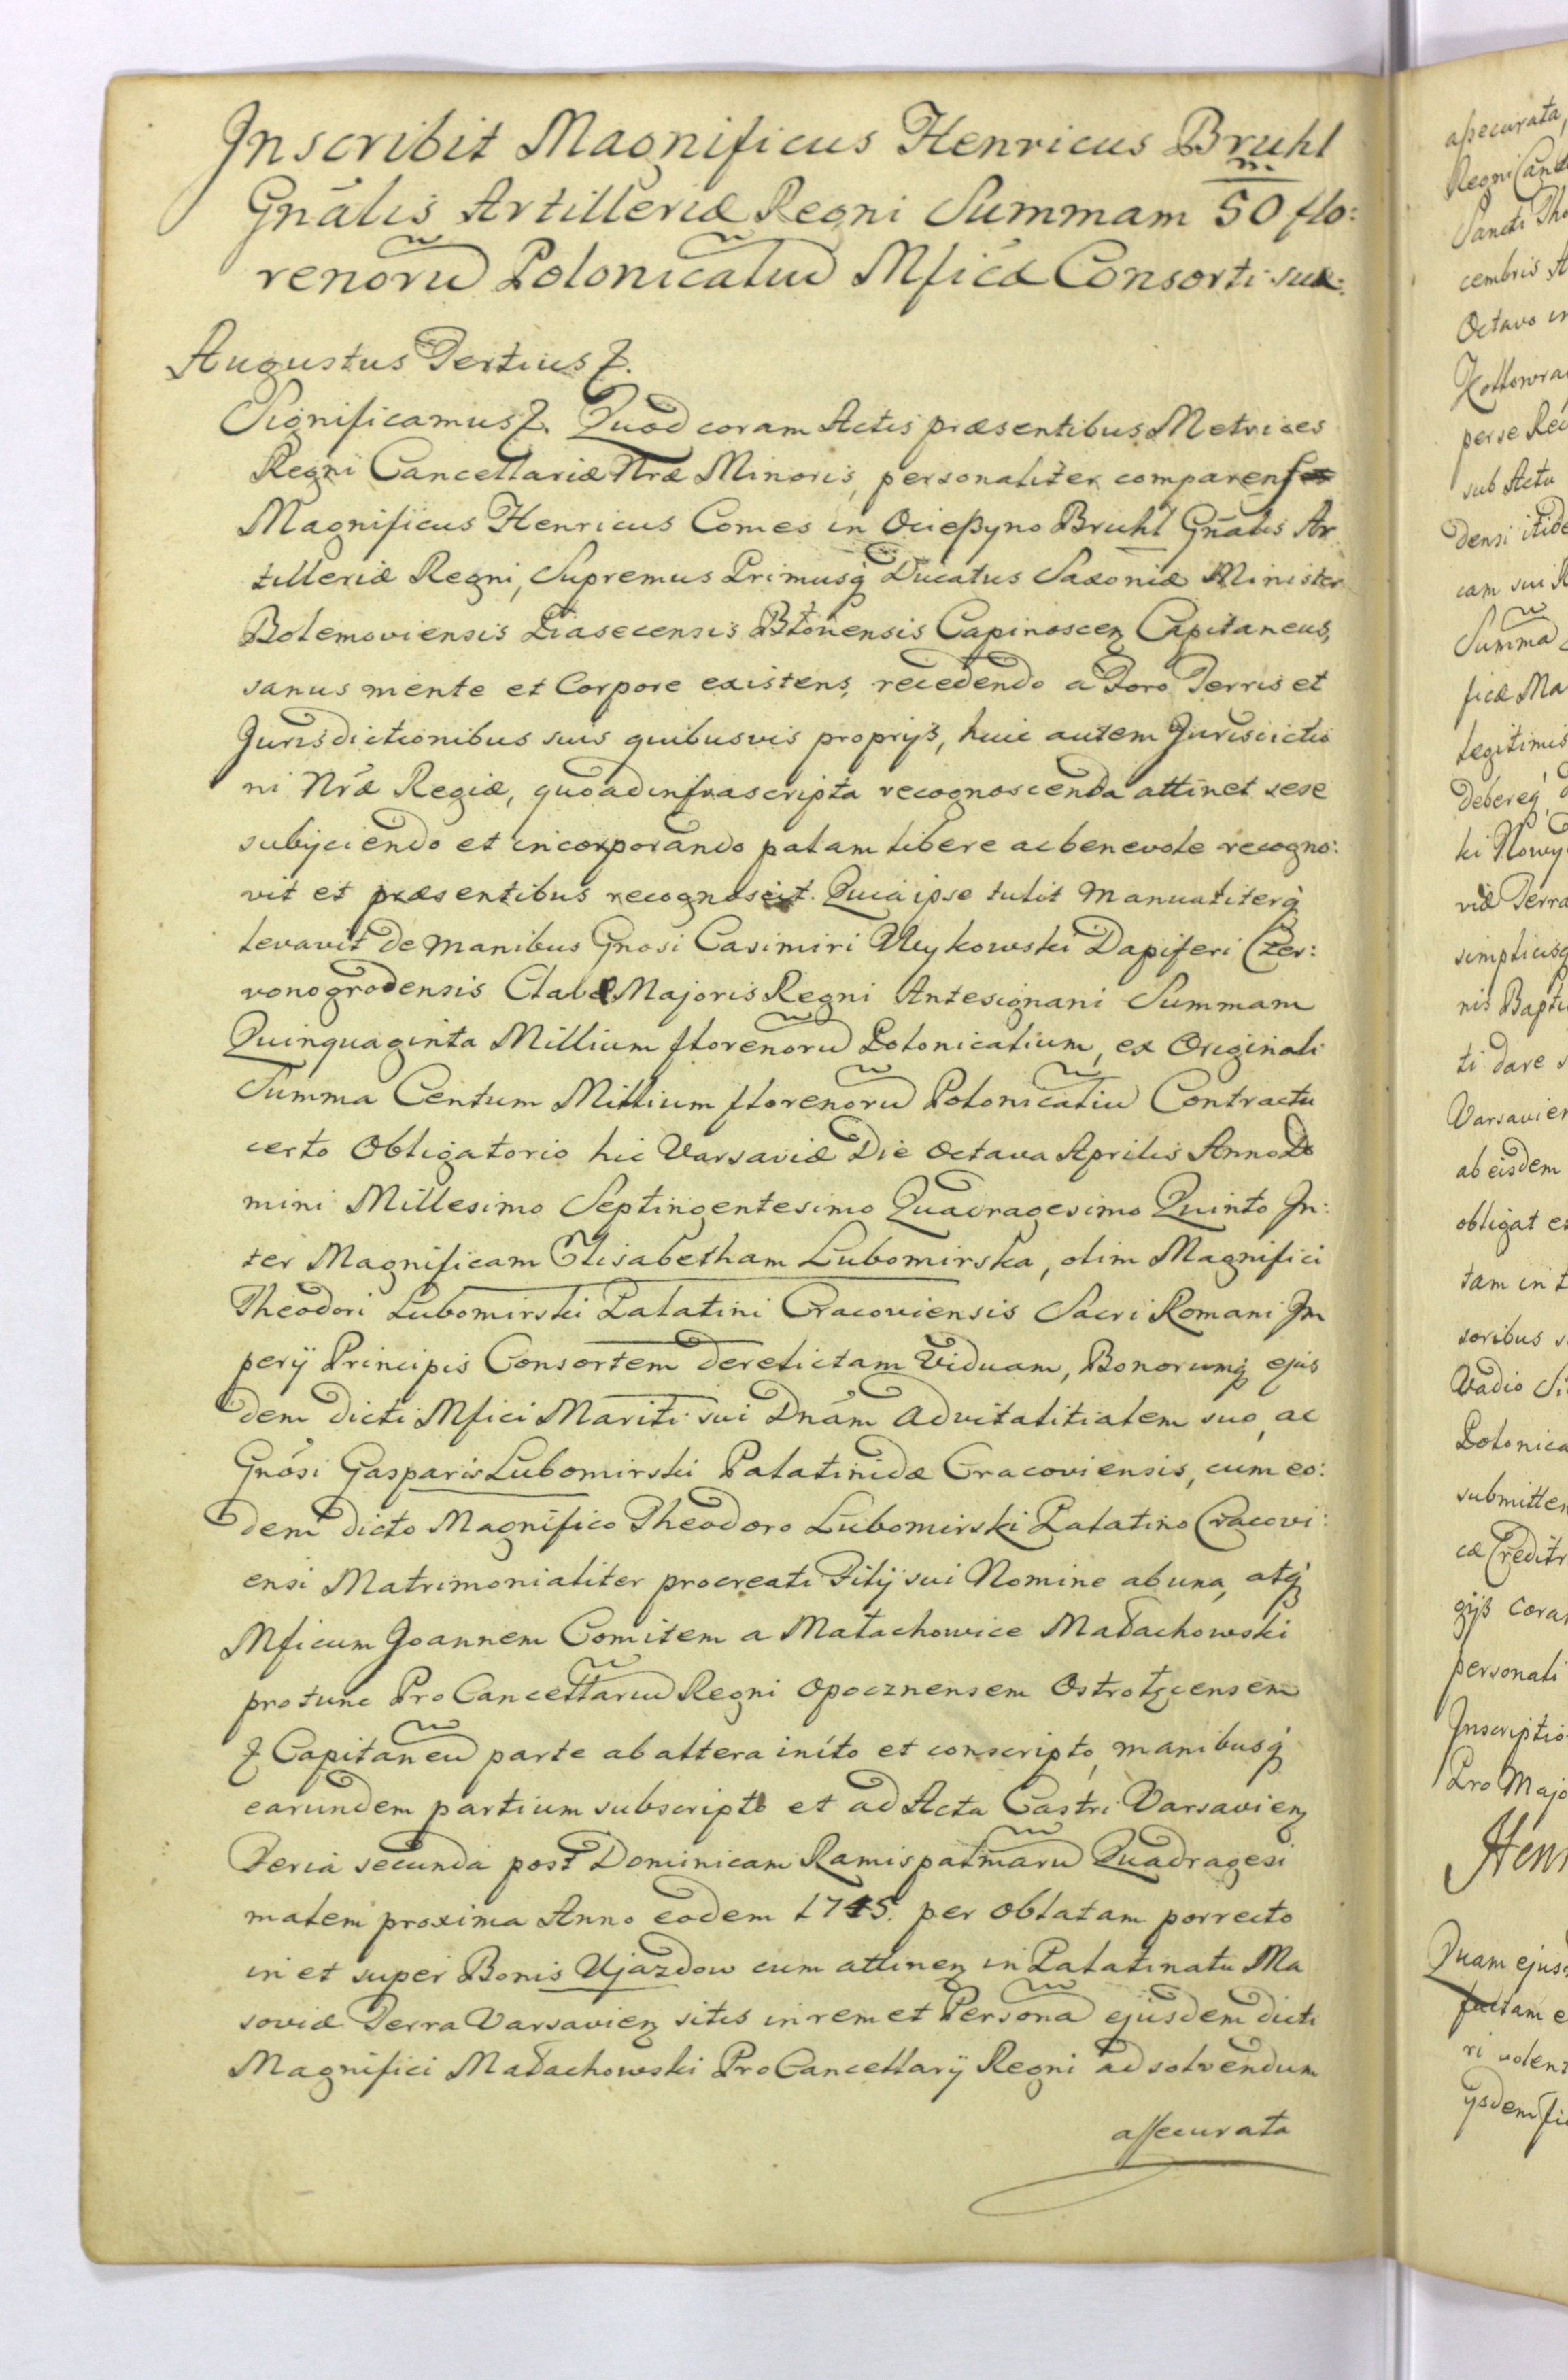 Inscribit Magnificus Henricus Bruhl
Gnãlis Artilleriæ Regni Summam 50 m. flo:
renorũ Polonicaliũ Mficæ Consorti suæ.
Augustus Tertius &.
Significamus &. Quod coram Actis præsentibus Metrices
Regni Cancellariæ Nræ Minoris, personaliter comparens
Magnificus Henricus Comes in Ocieszyno Bruhl Gnãlis Ar
tilleriæ Regni, Supremus Primusq Ducatus Saxoniæ Minister
Bolemoviensis Piasecensis Błonensis Capitaneus,
sanus mente et Corpore existens, recedendo a Foro Terris et
Jurisdictionibus suis quibusvis proprijs, huic autem Jurisdictio
ni Nræ Regiæ, quoad infrascripta recognoscenda attinet sese
subijciendo et incorporando palam libere ac benevole recogno:
vit et præsentibus recognoscit. Quia ipse tulit manualiterq
levavit de manibus Gnosi Casimiri Dapiferi Czer:
vonogrodensis Clavæ Majoris Regni Antesignani Summam
Quinquaginta Millium florenorũ Polonicalium, ex Originali
Summa Centum Millium florenorũ Polonicaliũ Contractu
certo Obligatorio hic Varsaviæ Die Octava Aprilis Anno Do
mini Millesimo Septingentesimo Quadragesimo Quinto In:
ter Magnificam Elisabetham Lubomirska, olim Magnifici
Theodori Lubomirski Palatini Cracoviensis Sacri Romani Im
perij Principis Consortem derelictam Viduam, Bonorumq ejus
dem dicti Mfici Mariti sui Dnam advitalitialem suo, ac
Gnosi Gasparis Lubomirski Palatinidæ Cracoviensis, cum eo:
dem dicto Magnifico Theodoro Lubomirski Palatino Cracovi:
ensi Matrimonialiter procreati Filij sui Nomine ab una, atq
Mficum Joannem Comitem a Małachowice Małachowski
pro tunc Pro Cancellariũ Regni Opocznensem Ostrołęcensem
& Capitaneũ parte ab altera inito et conscripto, manibusq
earundem partium subscripto et ad Acta Castri Varsavien
Feria secunda post Dominicam Ramispalmarũ Quadragesi
malem proxima Anno eodem 1745. per oblatam porrecto
in et super Bonis Ujazdow cum attinen in Palatinatu Ma
soviæ Terra Varsavien sitis in rem et Persona ejusdem dicti
Magnifici Małachowski Pro Cancellarij Regni ad solvendum
assecurata
assecurata,
Regni Canc
Sancti Tho
cembris A
Octavo in
per se Rec
sub Actu
densi itide
cam sui
Summa
ficæ Ma
legitimis
debereq,
ki Nowy
viæ Terra
simplicisq
nis Bapti
ti dare
Varsavien
ab eisdem
obligat e
tam in
soribus
Vadio
Polonica
submitten
cæ Credit
gijs cora
personali
Inscriptio
Pro Majo
Henr
Quam ejus
factam e
ri volen
ijsdem